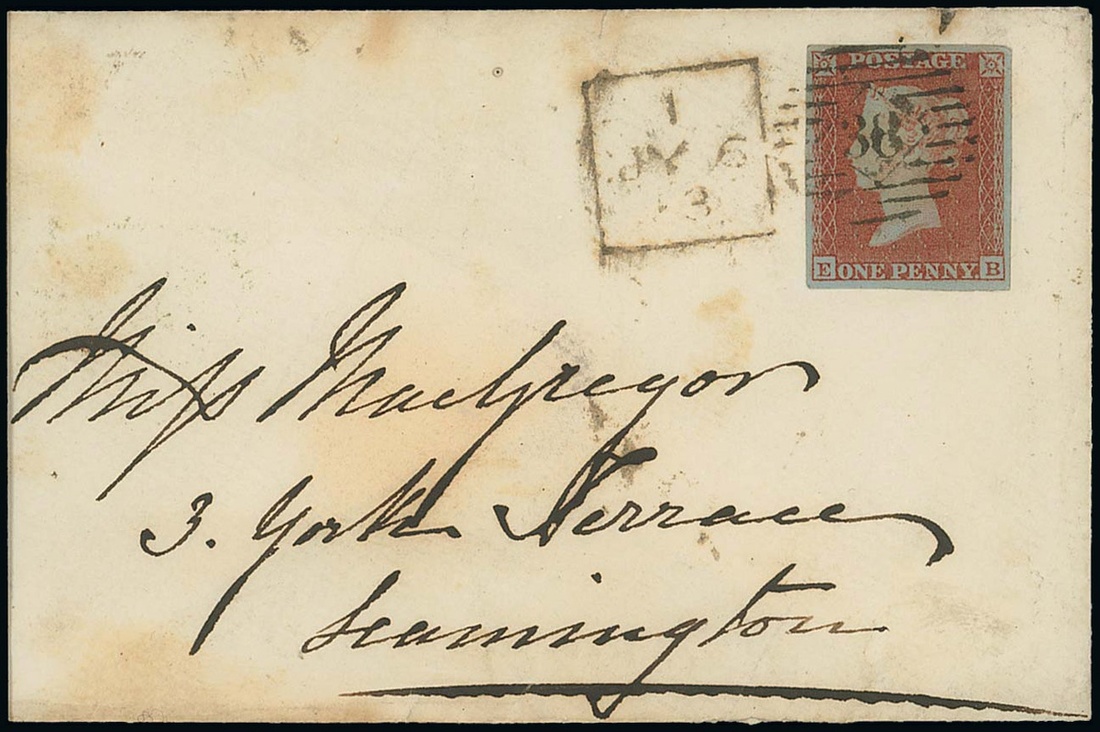 POSTAGE
38
E ONE PENNY. B
1
JY 6
3
Miss MacGregor
3. York Terrace
Leamington